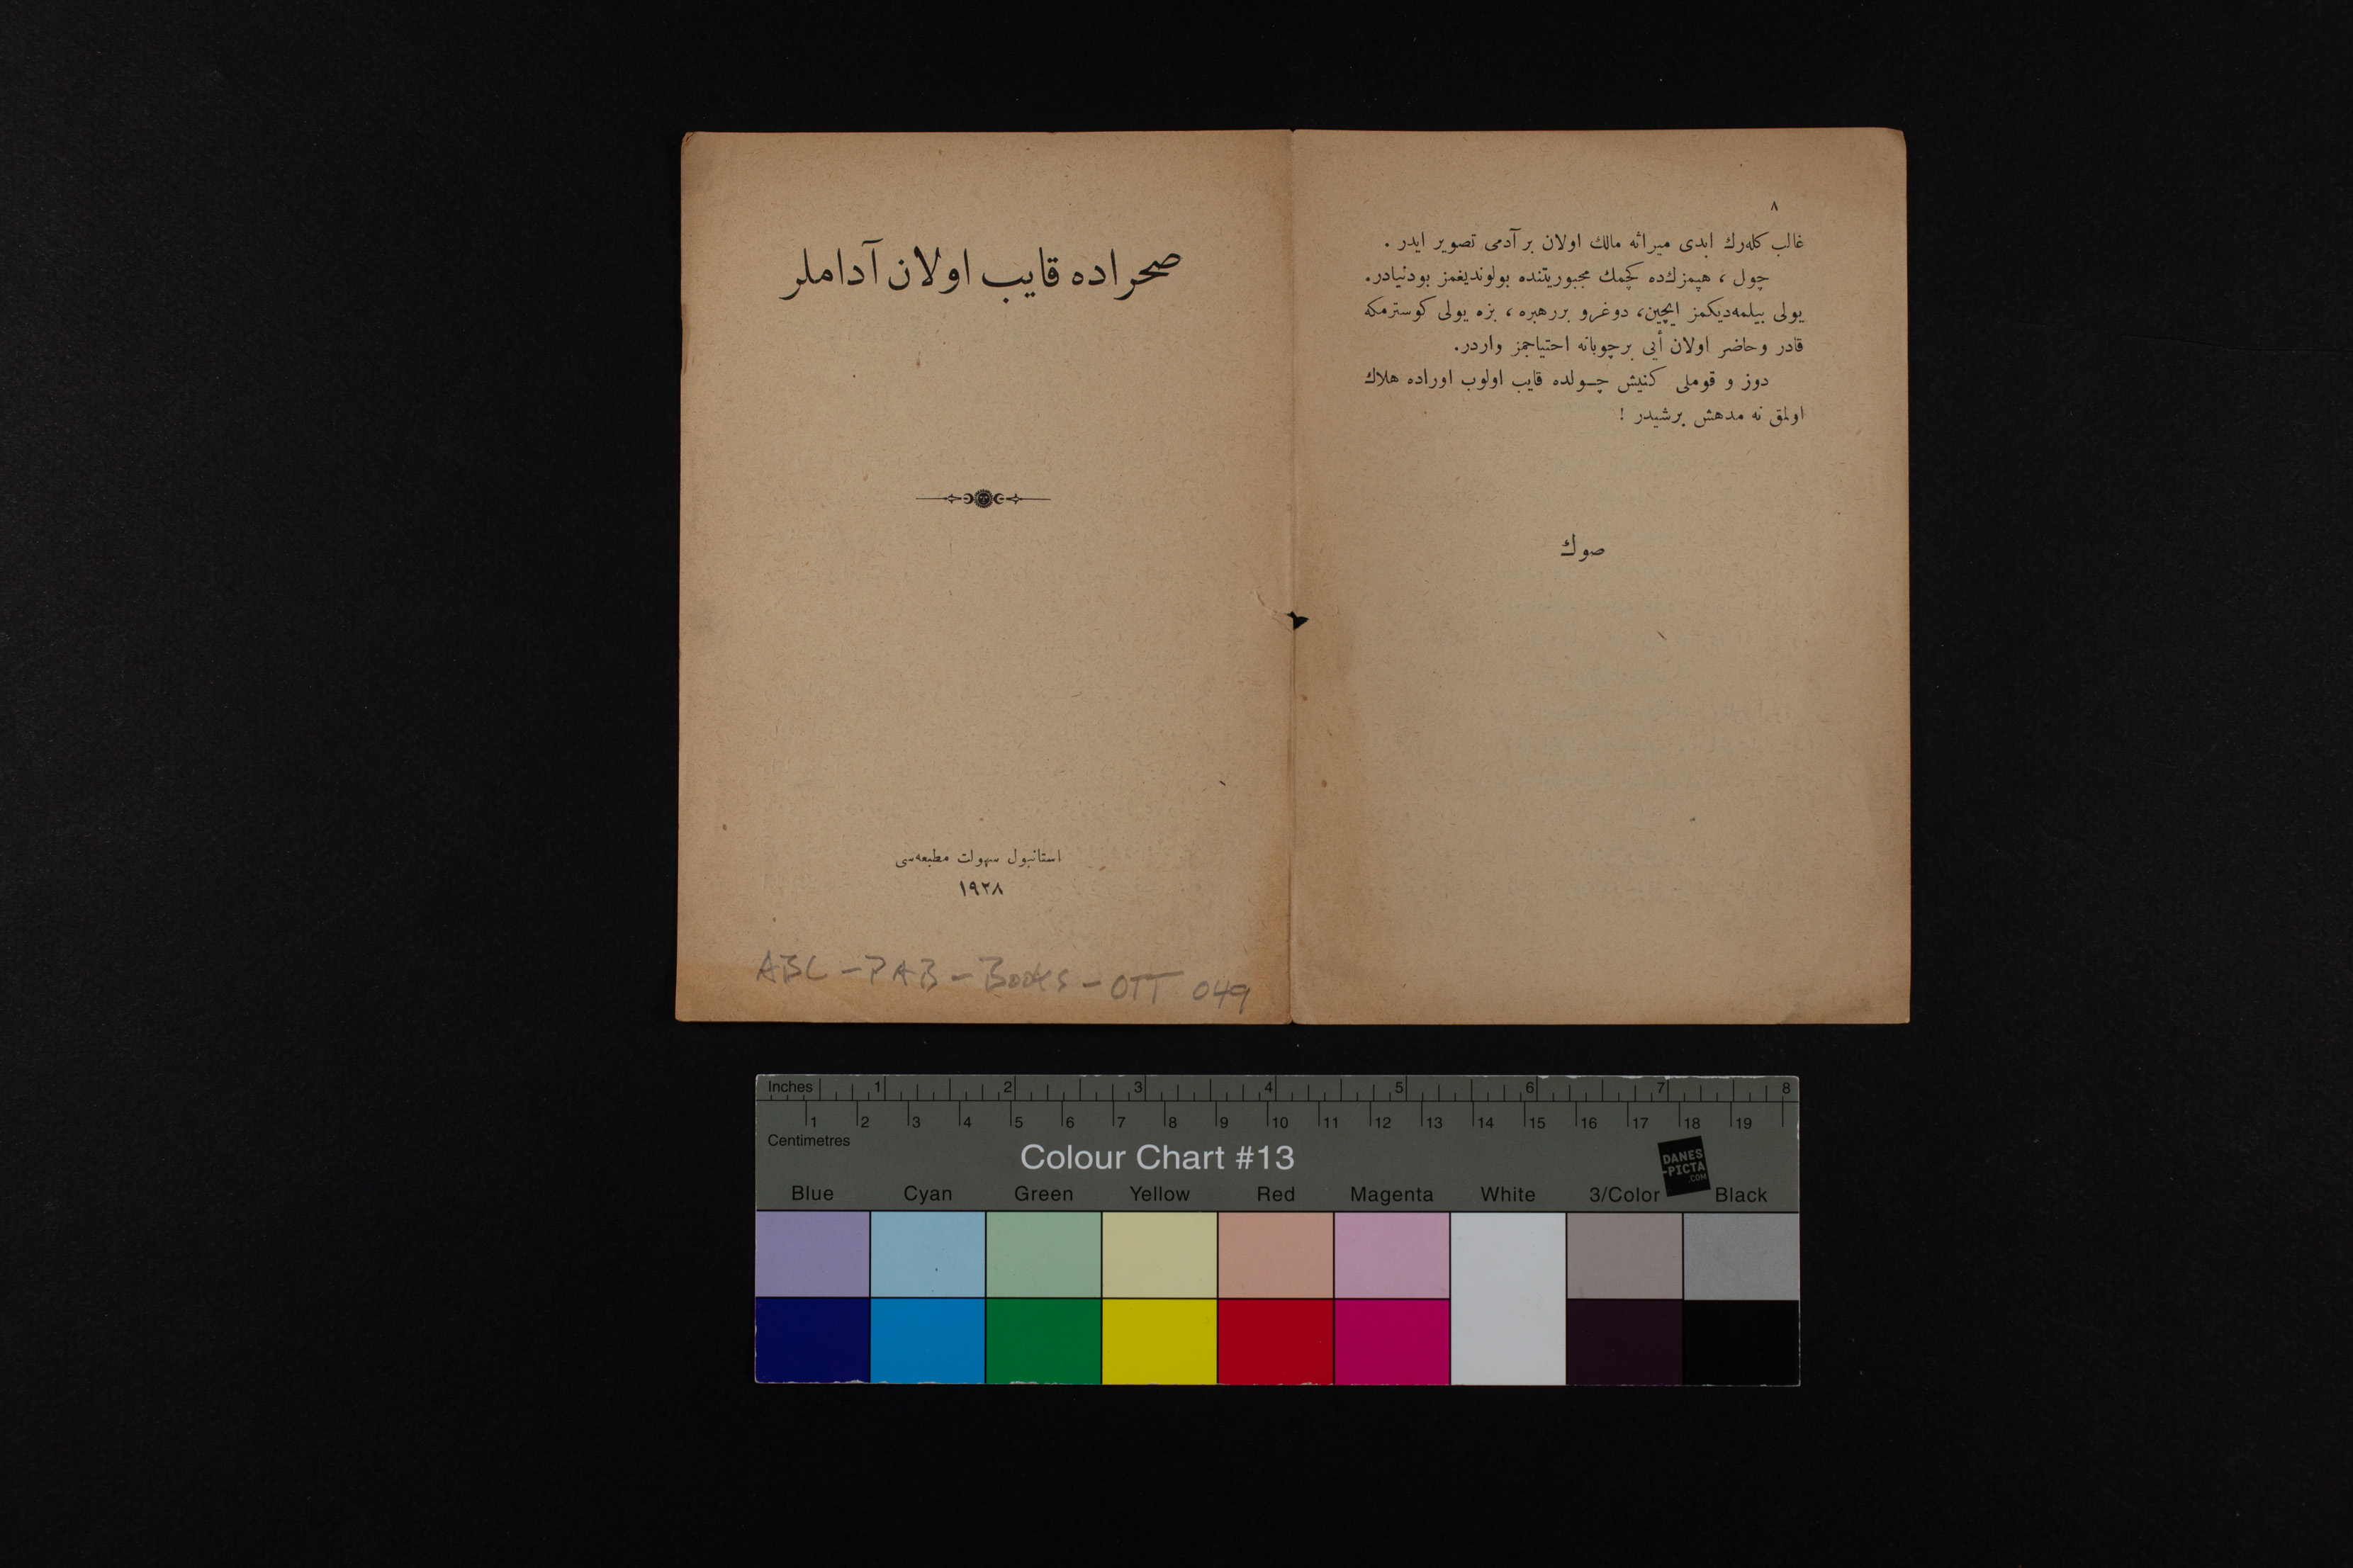 صحراده قایب اولان آداملر
استانبول سهولت مطبعه‌سی
١٩٢٨
ABC - PAB - Books - OTT 049
٨
غالب كله‌رك ابدی میراثه مالك اولان بر آدمی تصویر ایدر .
چول ، هپمزك‌ده كچمك مجبوریتنده بولوندیغمز بودنیادر.
یولی بیلمه‌دیكمز ایچین، دوغرو بررهبره ، بزه یولی كوسترمكه
قادر وحاضر اولان أیی برچوبانه احتیاجمز واردر.
دوز و قوملی كنیش چـولده قایب اولوب اوراده هلاك
اولمق نه مدهش برشیدر !
صوك
Inches 1 2 3 4 5 6 7 8
1 2 3 4 5 6 7 8 9 10 11 12 13 14 15 16 17 18 19
Centimetres
Colour Chart #13
DANES
-PICTA
.COM
Blue Cyan Green Yellow Red Magenta White 3/Color Black